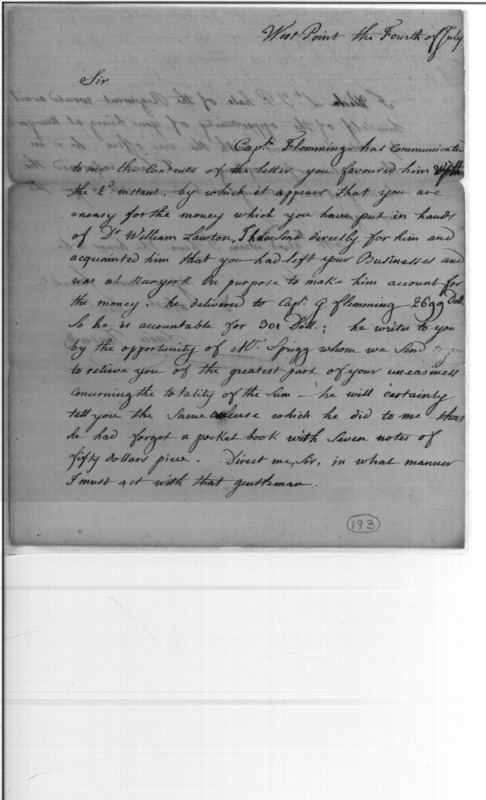 West Point the Fourth of July
Sir
Capt. Flemming has communicated
to me the Contents of the letter you favoured him with
the 2d instant, by which it appears that you are
uneasy for the money which you have put in hands
of Dr. William Lawton, I have Send directly for him and
acquainted him that you had left your Businesses and
was at Newyork on purpose to make him account for
the money. he delivered to Capt. G flemming 2699 Doll.
So he is accountable for 301 Doll.; he writes to you
by the opportunity of Mr. Sprigg whom we Send to you
to relieve you of the greatest part of your uneasiness
concerning the totality of the Sum – he will certainly
tell you the Same excuse which he did to me that
he had forgot a pocket book with Seven notes of
fifty dollars piece. Direct me, Sir, in what manner
I must act with that gentleman.
193